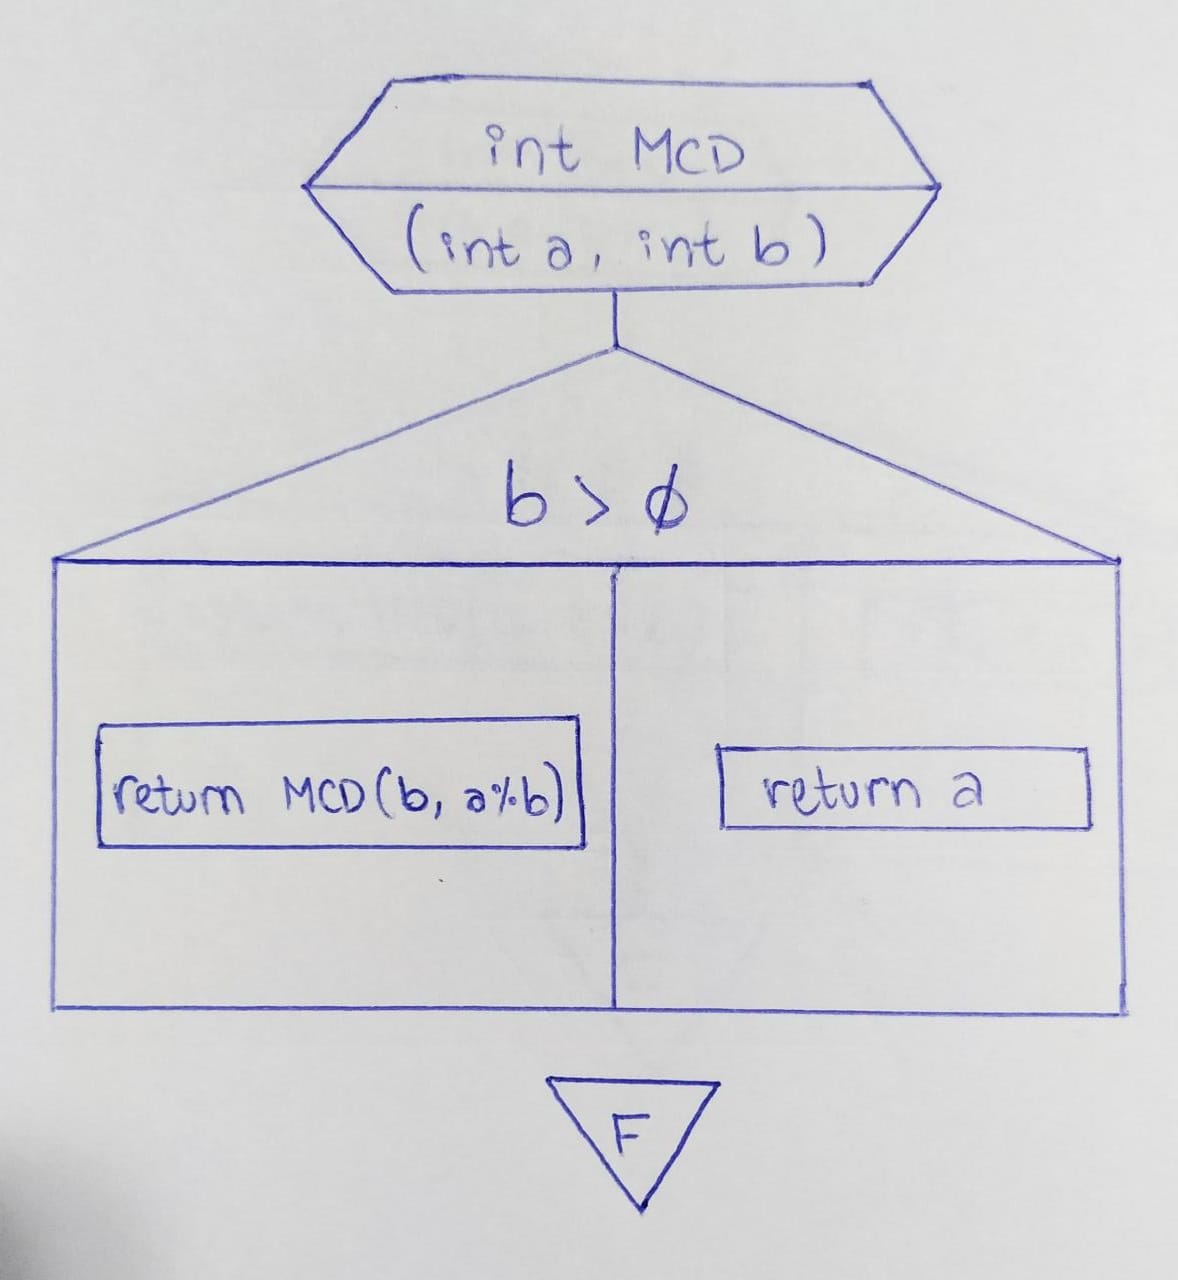 int MCD
(int a, int b)
b > ϕ
return MCD(b, a%b)
return a
F